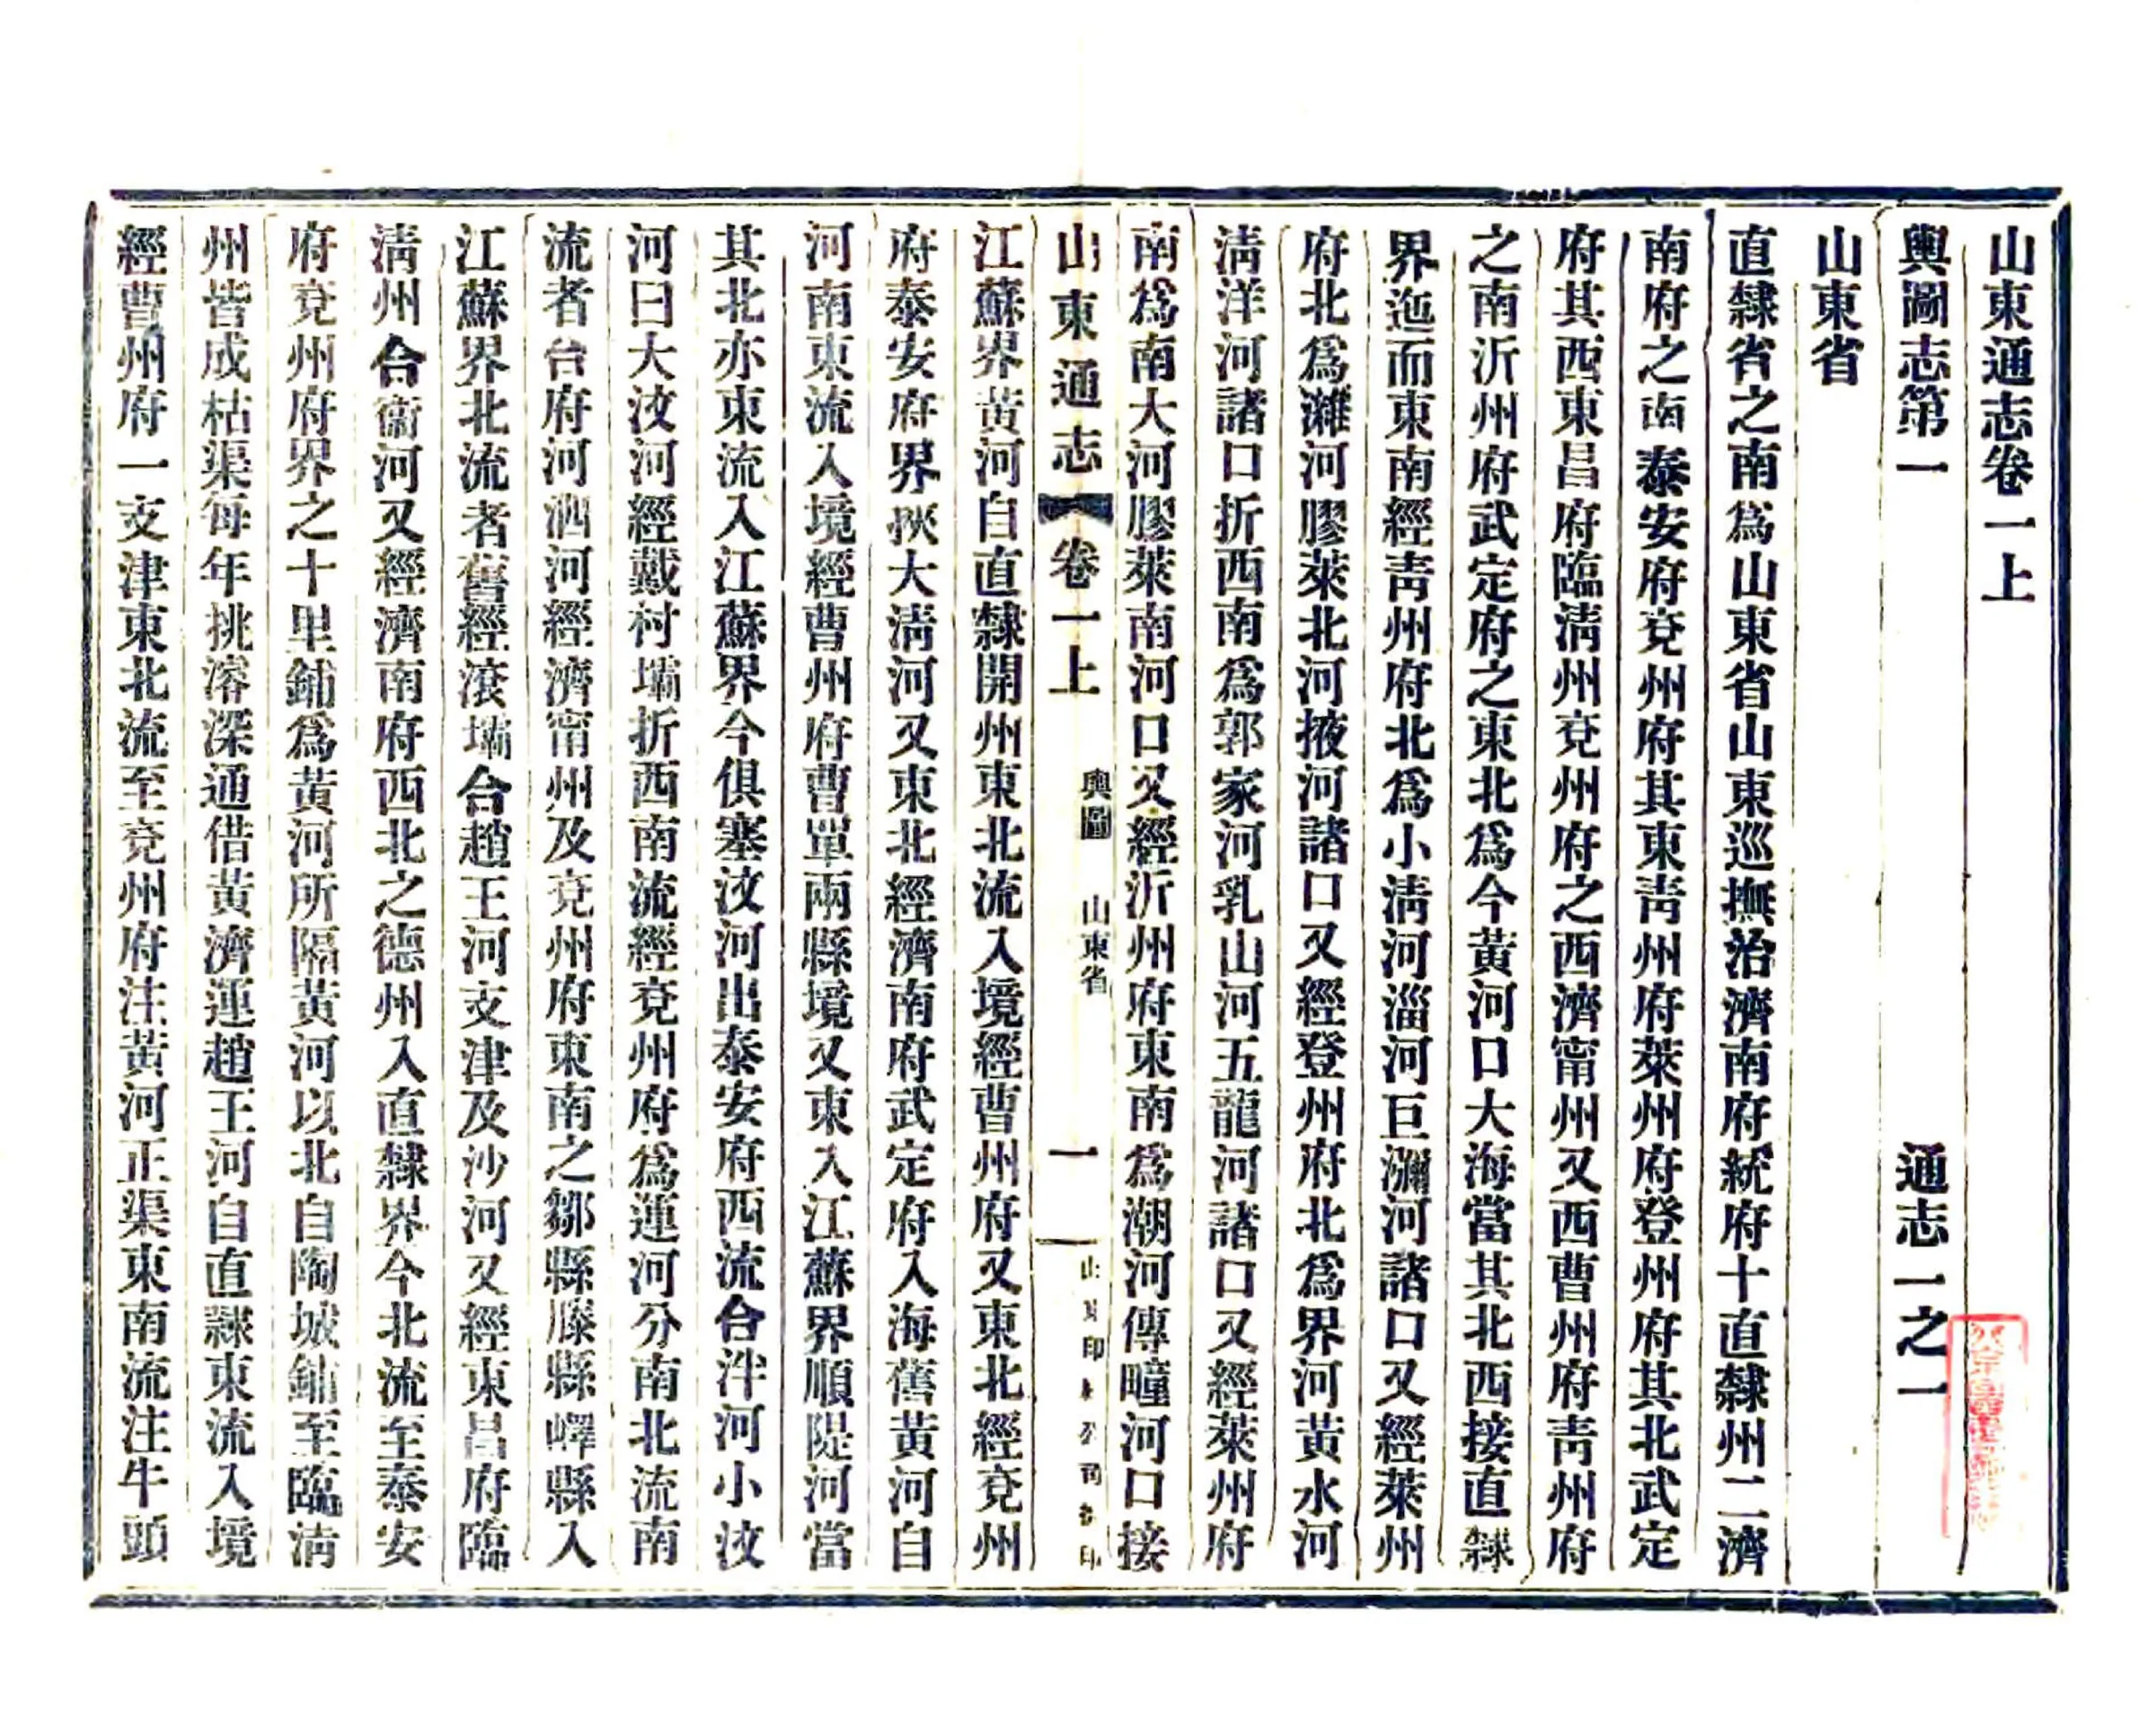 山東通志卷一上
輿圖志第一　通志一之一
山東省
直隸省之南爲山東省山東巡撫治濟南府統府十直隸州二濟
南府之南泰安府兗州府其東靑州府萊州府登州府其北武定
府其西東昌府臨淸州兗州府之西濟甯州又西曹州府靑州府
之南沂州府武定府之東北爲今黃河口大海當其北西接直隸
界迤而東南經靑州府北爲小淸河淄河巨瀰河諸口又經萊州
府北爲濰河膠萊北河掖河諸口又經登州府北爲界河黃水河
淸洋河諸口折西南爲郭家河乳山河五龍河諸口又經萊州府
南爲南大河膠萊南河口又經沂州府東南爲潮河傳疃河口接
山東通志　卷一上　輿圖　山東省　一
江蘇界黃河自直隸開州東北流入境經曹州府又東北經兗州
府泰安府界狹大淸河又東北經濟南府武定府入海舊黃河自
河南東流入境經曹州府曹單兩縣境又東入江蘇界順隄河當
其北亦東流入江蘇界今俱塞汶河出泰安府西流合泮河小汶
河曰大汶河經戴村壩折西南流經兗州府爲運河分南北流南
流者合府河泗河經濟甯州及兗州府東南之鄒縣滕縣嶧縣入
江蘇界北流者舊經滾壩合趙王河支津及沙河又經東昌府臨
淸州合衞河又經濟南府西北之德州入直隸界今北流至泰安
府兗州府界之十里鋪爲黃河所隔黃河以北自陶城鋪至臨淸
州皆成枯渠每年挑濬深通借黃濟運趙王河自直隸東流入境
經曹州府一支津東北流至兗州府注黃河正渠東南流注牛頭